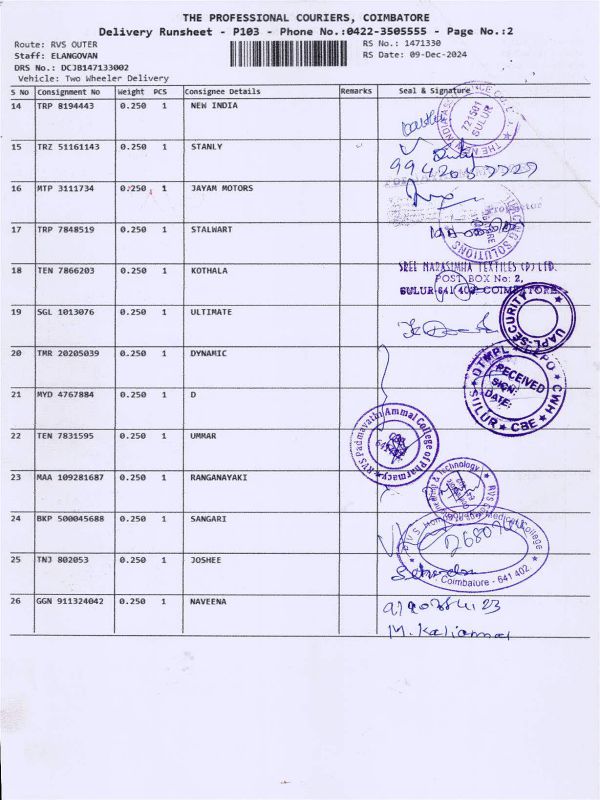 THE PROFESSIONAL COURIERS, COIMBATORE
Delivery Runsheet - P103 - Phone No.:0422-3505555 - Page No.:2
Route: RVS OUTER RS No.: 1471330
Staff: ELANGOVAN RS Date: 09-Dec-2024
DRS No.: DCJB147133002
Vehicle: Two Wheeler Delivery
S No Consignment No Weight PCS Consignee Details Remarks Seal & Signature
14 TRP 8194443 0.250 1 NEW INDIA
721501
SULUR
15 TRZ 51161143 0.250 1 STANLY
16 MTP 3111734 0.250 1 JAYAM MOTORS
17 TRP 7848519 0.250 1 STALWART
SOLUTIONS
18 TEN 7866203 0.250 1 KOTHALA
SREE NARASIMHA TEXTILES (P) LTD.
POST BOX No: 2,
SULUR-641 402 COIMBATORE.
19 SGL 1013076 0.250 1 ULTIMATE
UAPL-SECURITY
20 TMR 20205039 0.250 1 DYNAMIC
RECEIVED
SIGN:
DATE:
SULUR ★ CBE ★ CWH
21 MYD 4767884 0.250 1 D
22 TEN 7831595 0.250 1 UMMAR
RVS Padmavathi Ammal College of Pharmacy
23 MAA 109281687 0.250 1 RANGANAYAKI
24 BKP 500045688 0.250 1 SANGARI
25 TNJ 802053 0.250 1 JOSHEE
Coimbatore - 641 402
26 GGN 911324042 0.250 1 NAVEENA